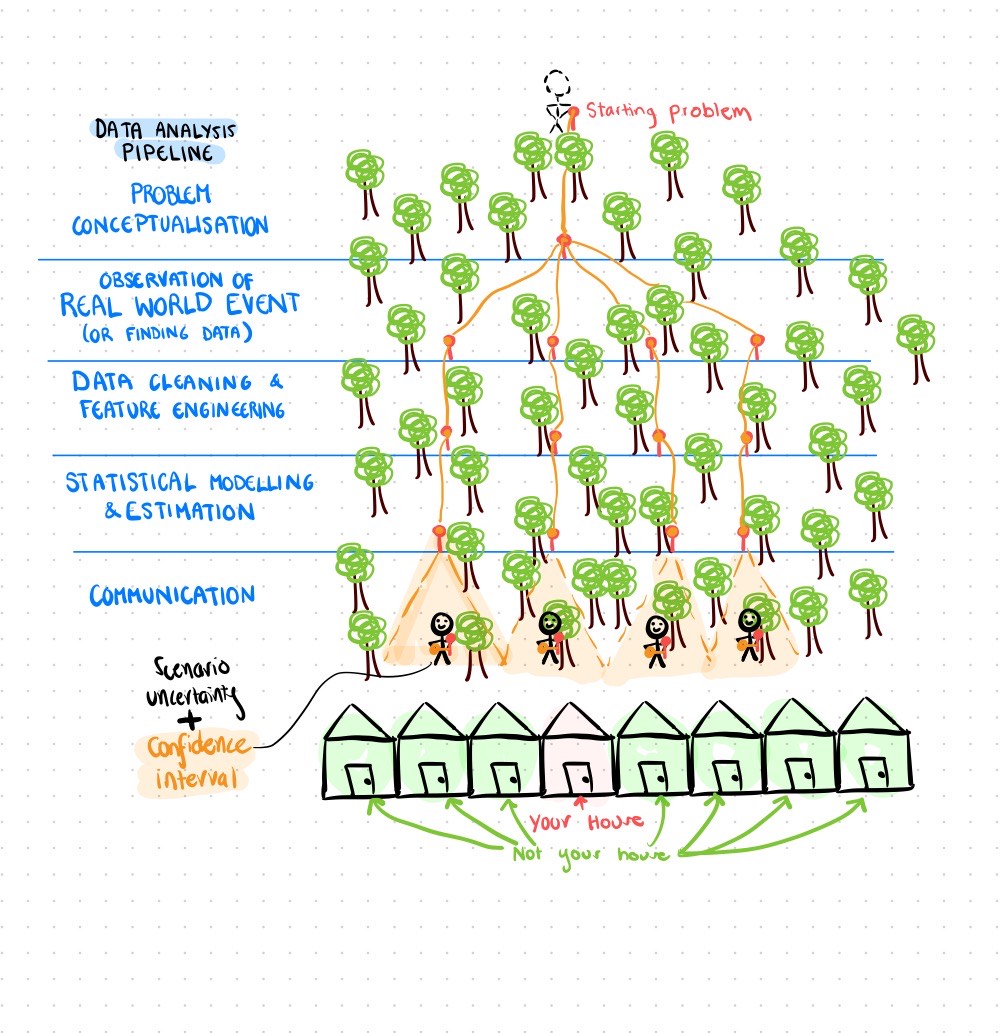 Starting problem
DATA ANALYSIS
PIPELINE
PROBLEM
CONCEPTUALISATION
OBSERVATION OF
REAL WORLD EVENT
(OR FINDING DATA)
DATA CLEANING &
FEATURE ENGINEERING
STATISTICAL MODELLING
& ESTIMATION
COMMUNICATION
Scenario
uncertainty
+
Confidence
interval
Your House
Not your house